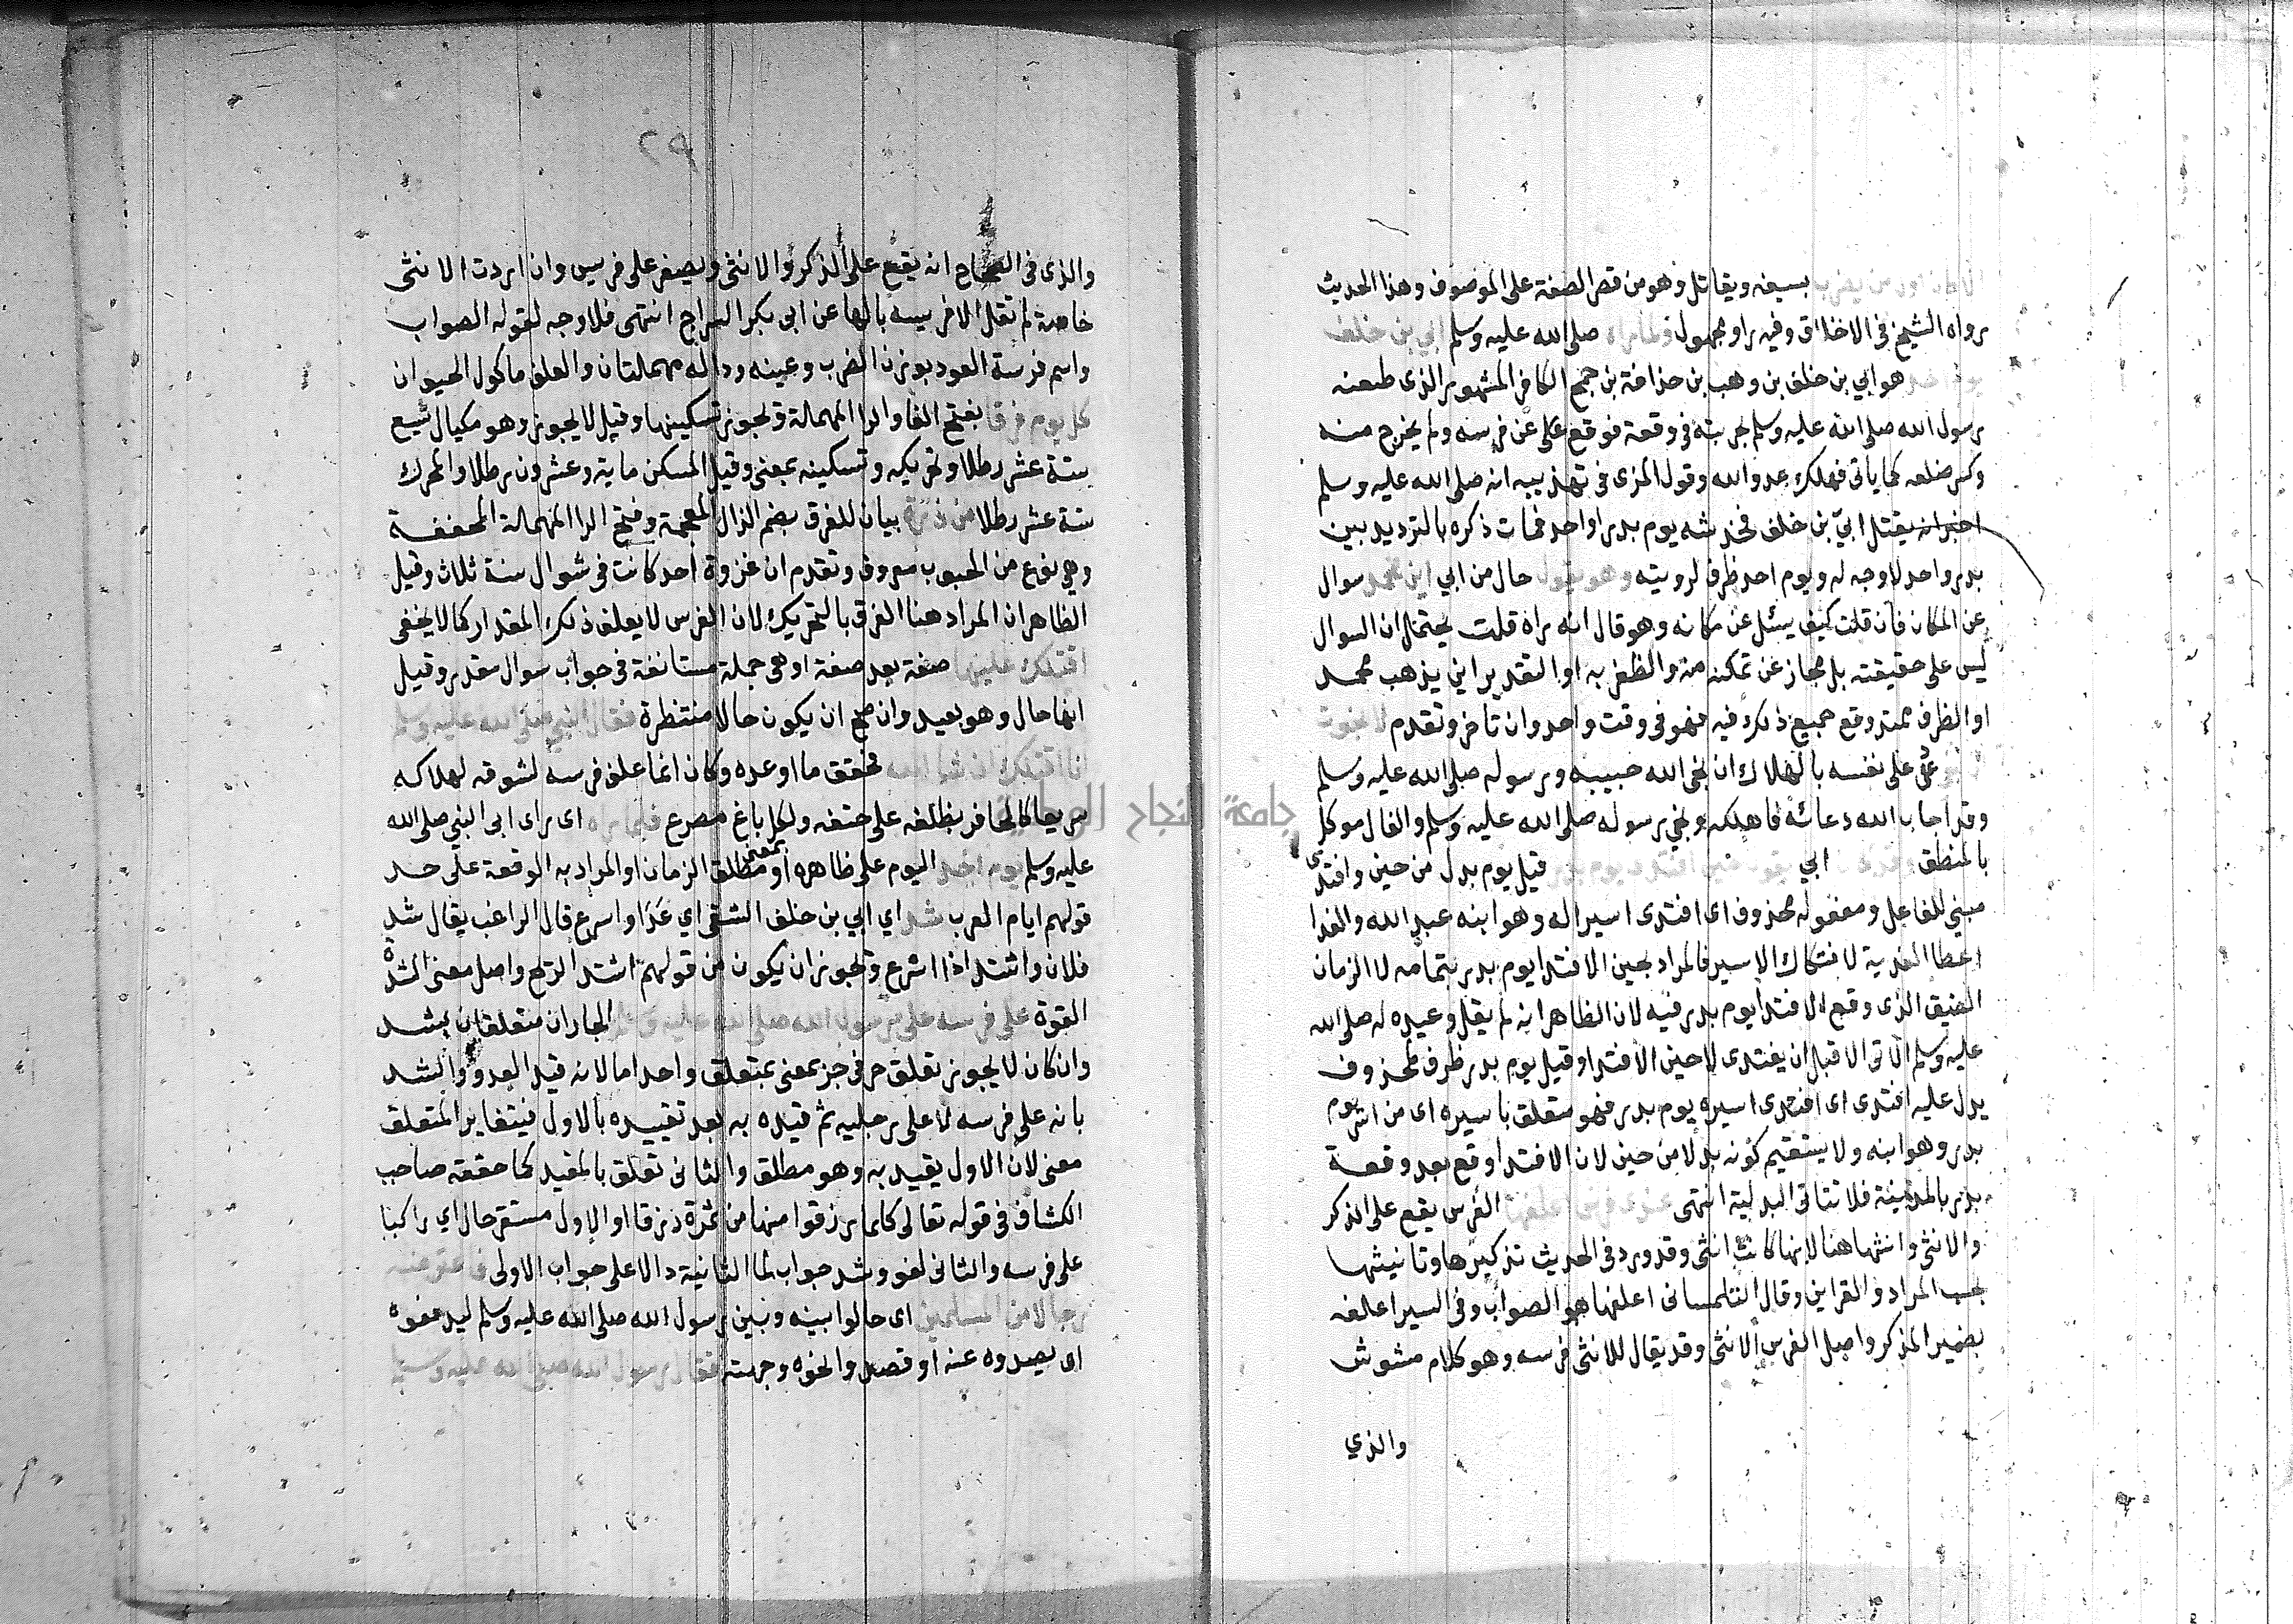 الا كان اول من يضرب بسيفه ويقاتل وهو من قصر الصفة على الموصوف وهذا الحديث
رواه الشيخ في الاخلاق وفيه راو مجهول ولما راه صلى الله عليه وسلم ابي بن خلف
يوم احد هو ابي بن خلف بن وهب بن حذافة بن جمح الكافر المشهور الذى طعنه
رسول الله صلى الله عليه وسلم بحربته في وقعة فوقع على عن فرسه ولم يخرج منه
وكسر ضلعه كما ياتى فهلك عدو الله وقول المزى فى تهذيبه انه صلى الله عليه وسلم
اخبر انه يقتل ابيّ بن خلف فخدشه يوم بدر او احد فمات ذكره بالترديد بين
بدر واحد لا وجه له ويوم احد ظرف لرويته وهو يقول حال من ابي اين محمد سوال
عن المكان فان قلت كيف يسئل عن مكانه وهو قال انه راه قلت يحتمل ان السوال
ليس على حقيقته بل مجاز عن تمكنه منه والظفر به او التقدير اين يذهب محمد
او الظرف ممتد وقع جميع ذلك فيه فهو فى وقت واحد وان تاخر وتقدم لا نجوت
على نفسه بالهلاك ان نجى الله حبيبه ورسوله صلى الله عليه وسلم
وقد اجاب الله دعائه فاهلكه ونجي رسوله صلى الله عليه وسلم والفال موكل
بالمنطق وقد كان ابي يقول حين افتدى يوم بدر قيل يوم بدل من حين وافتدى
مبني للفاعل ومفعوله محذوف اى افتدى اسيرا له وهو ابنه عبد الله والفدا
اعطا الفدية لافتكاك الاسير فالمراد بحين الافتدا يوم بدر بتمامه لا الزمان
الضيق الذى وقع الافتدا يوم بدر فيه لان الظاهر انه لم يقل وعيده له صلى الله
عليه وسلم الاتى الا قبل ان يفتدى لا حين الافتدا وقيل يوم بدر ظرف لمحذوف
يدل عليه افتدى اى افتدى اسيره يوم بدر فهو متعلق باسيره اى من اسر يوم
بدر وهو ابنه ولا يستقيم كونه بدلا من حين لان الافتدا وقع بعد وقعة
بدر بالمدينة فلا تتاتى البدلية انتهى عندى فرس اعلفها الفرس يقع على الذكر
والانثى وانثها هنا لانها كانت انثى وقد ورد فى الحديث تذكيرها وتانيثها
بحسب المراد والقراين وقال التلمسانى اعلفها هو الصواب وفى السير اعلفه
بضمير المذكر واصل الفرس الانثى وقد يقال للانثى فرسه وهو كلام مشوش
والذي
٢٩
والذى فى الصحاح انه يقع على الذكر والانثى ويصغر على فريس وان اردت الانثى
خاصة لم تقل الا فريسه بالها عن ابى بكر السراج انتهى فلا وجه لقوله الصواب
واسم فرسة العود بوزن الضرب وعينه وداله مهملتان والعلف ماكول الحيوان
كل يوم فرقا بفتح الفا والرا المهملة ويجوز تسكينها وقيل لا يجوز وهو مكيال يسع
ستة عشر رطلا وتحريكه وتسكينه بمعنى وقيل المسكن ماية وعشرون رطلا والمحرك
ستة عشر رطلا من ذرة بيان للفرق بضم الذال المعجمة وفتح الرا المهملة المخففة
وهي نوع من الحبوب معروف وتقدم ان غزوة احد كانت فى شوال سنة ثلاث وقيل
الظاهر ان المراد هنا الفرق بالتحريك لان الفرس لا يعلف ذلك المقدار كما لا يخفى
اقتلك عليها صفة بعد صفة او هى جملة مستانفة فى جواب سوال مقدر وقيل
انها حال وهو بعيد وان صح ان يكون حالا منتظرة فقال النبي صلى الله عليه وسلم
انا اقتلك ان شا الله فحقق ما اوعده وكان انما علف فرسه لشوقه لهلاكه
سريعا كالحافر بظلفه على حتفه ولكل باغ مصرع فلما راه اى راى ابى النبي صلى الله
عليه وسلم يوم احد اليوم على ظاهره او بمعنى مطلق الزمان او المراد به الوقعة على حد
قولهم ايام العرب شد اي ابي بن خلف الشقى اي عَدَا واسرع قال الراغب يقال شد
فلان واشتد اذا اسرع ويجوز ان يكون من قولهم اشتد الريح واصل معنى الشدة
القوة على فرسه على رسول الله صلى الله عليه وسلم الجاران متعلقان بشد
وان كان لا يجوز تعلق حرفى جر بمعنى بمتعلق واحد اما لانه قيد العدو والشد
بانه على فرسه لا على رجليه ثم قيده به بعد تقييده بالاول فيتغاير المتعلق
معنى لان الاول يقيد به وهو مطلق والثانى تعلق بالمقيد كما حققه صاحب
الكشاف فى قوله تعالى كلما رزقوا منها من ثمرة رزقا او الاول مستقر حال اي راكبا
على فرسه والثانى لغو وشد جواب لما الثانية دالا على جواب الاولى فاعترضه
رجال من المسلمين اى حالوا بينه وبين رسول الله صلى الله عليه وسلم ليدفعوه
اى يصدوه عنه او قصدوا نحوه وجهته فقال رسول الله صلى الله عليه وسلم
جامعة النجاح الوطنية